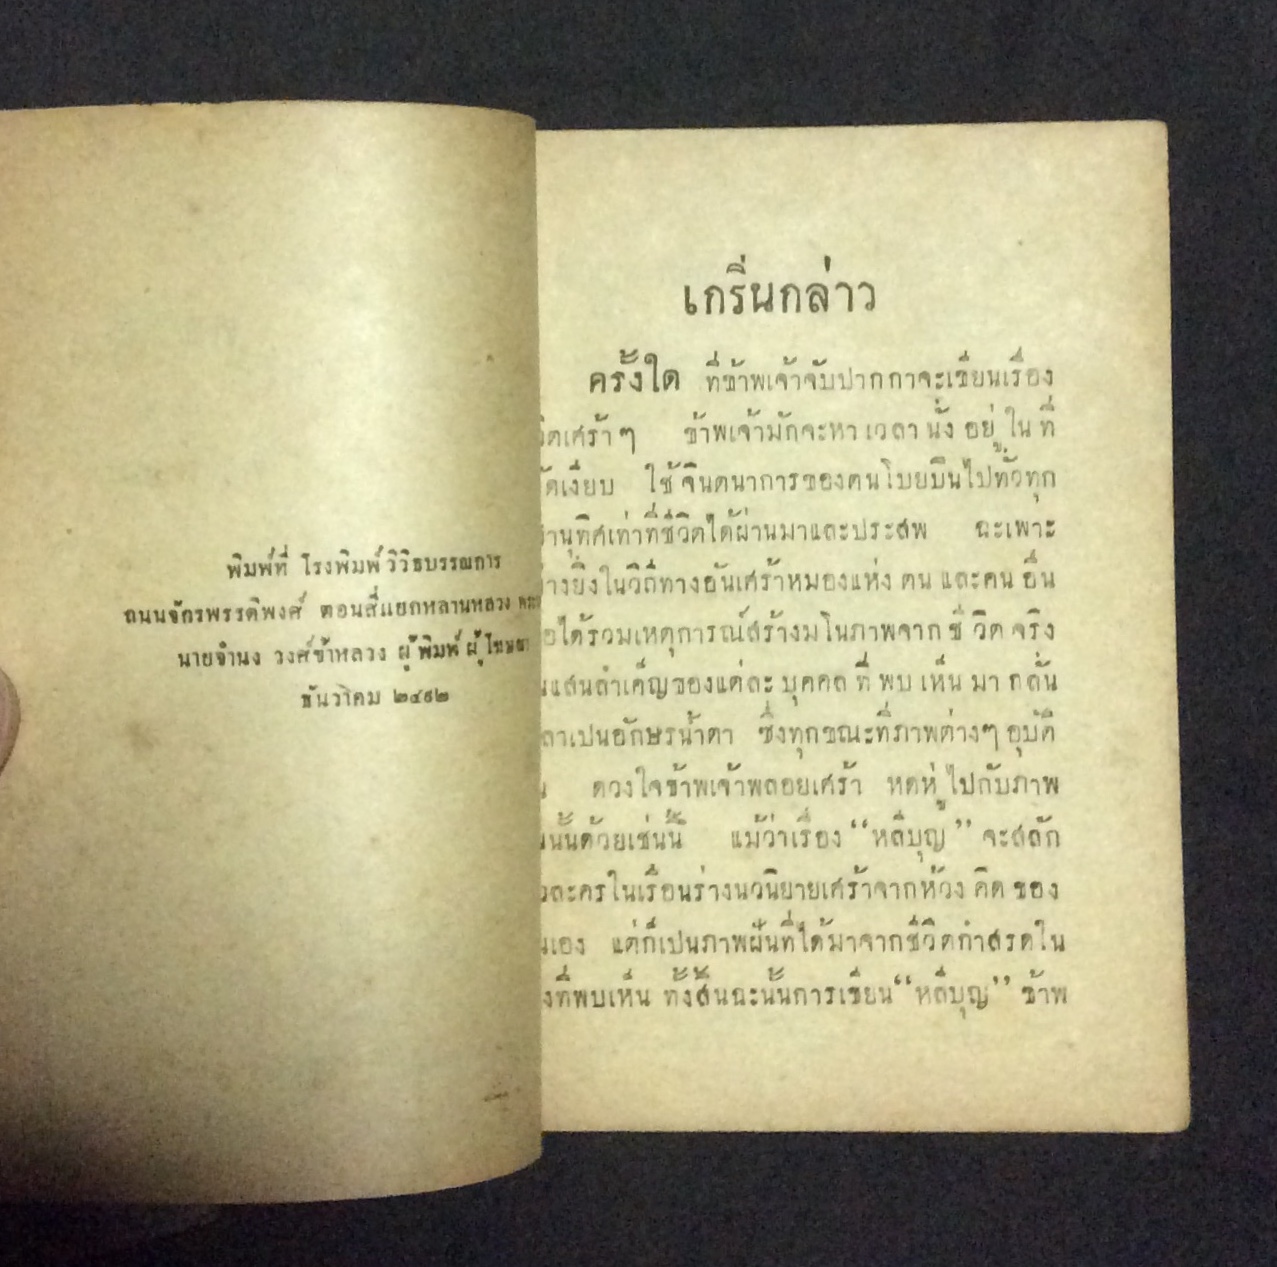 พิมพ์ที่ โรงพิมพ์วิวิธบรรณการ
ถนนจักรพรรดิพงศ์ ตอนสี่แยกหลานหลวง
นายจำนง วงศ์ข้าหลวง ผู้พิมพ์ ผู้โฆษณา
ธันวาคม ๒๔๙๒
เกริ่นกล่าว
ครั้งใด ที่ข้าพเจ้าจับปากกาจะเขียนเรื่อง
เศร้า ๆ ข้าพเจ้ามักจะหาเวลานั่งอยู่ในที่
เงียบ ใช้จินตนาการของตนโบยบินไปทั่วทุก
านุทิศเท่าที่ชีวิตได้ผ่านมาและประสพ ฉะเพาะ
ย่างยิ่งในวิถีทางอันเศร้าหมองแห่งตนและคนอื่น
ได้รวมเหตุการณ์สร้างมโนภาพจากชีวิตจริง
แสนลำเค็ญของแต่ละบุคคลที่พบเห็นมากลั่น
าเปนอักษรน้ำตา ซึ่งทุกขณะที่ภาพต่างๆอุบัติ
ดวงใจข้าพเจ้าพลอยเศร้า หดหู่ไปกับภาพ
นั้นด้วยเช่นนี้ แม้ว่าเรื่อง “หลีบุญ” จะสลัก
ละครในเรือนร่างนวนิยายเศร้าจากห้วงคิดของ
เอง แต่ก็เปนภาพฝันที่ได้มาจากชีวิตกำสรดใน
ที่พบเห็น ทั้งสิ้นฉะนั้นการเขียน “หลีบุญ” ข้าพ